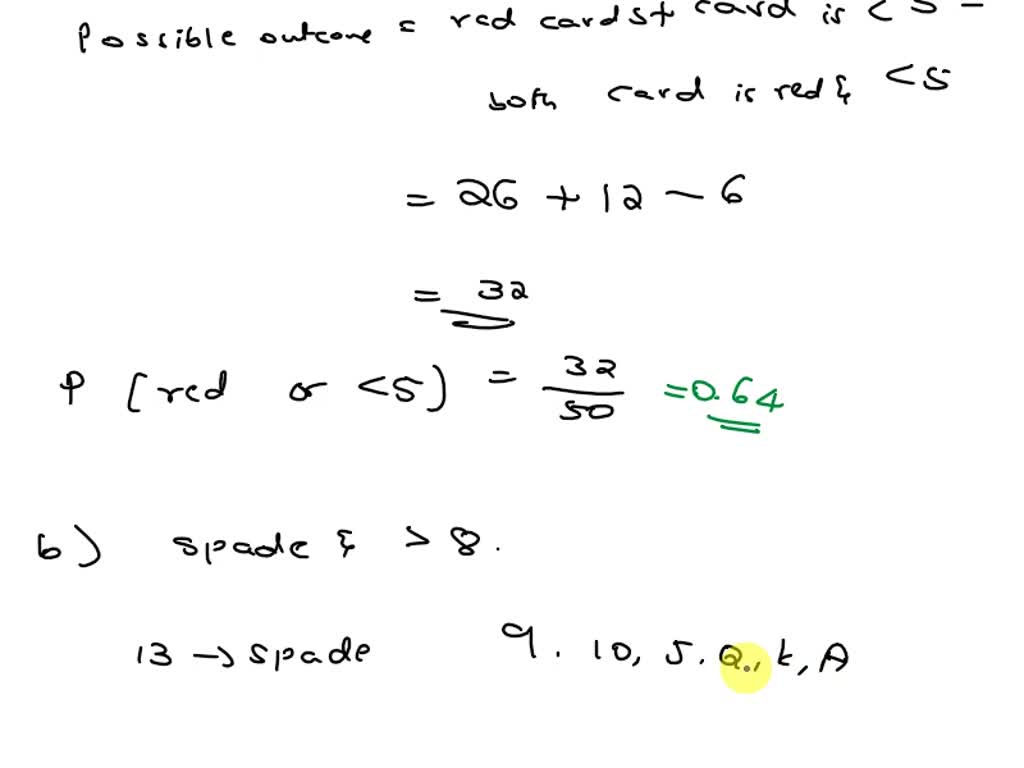 Possible outcome = red cards + card is < 5 -
both card is red & < 5
= 26 + 12 - 6
= 32
P [red or <5) = 32/50 = 0.64
b) spade & > 8.
13 → spade 9. 10, J. Q., K, A